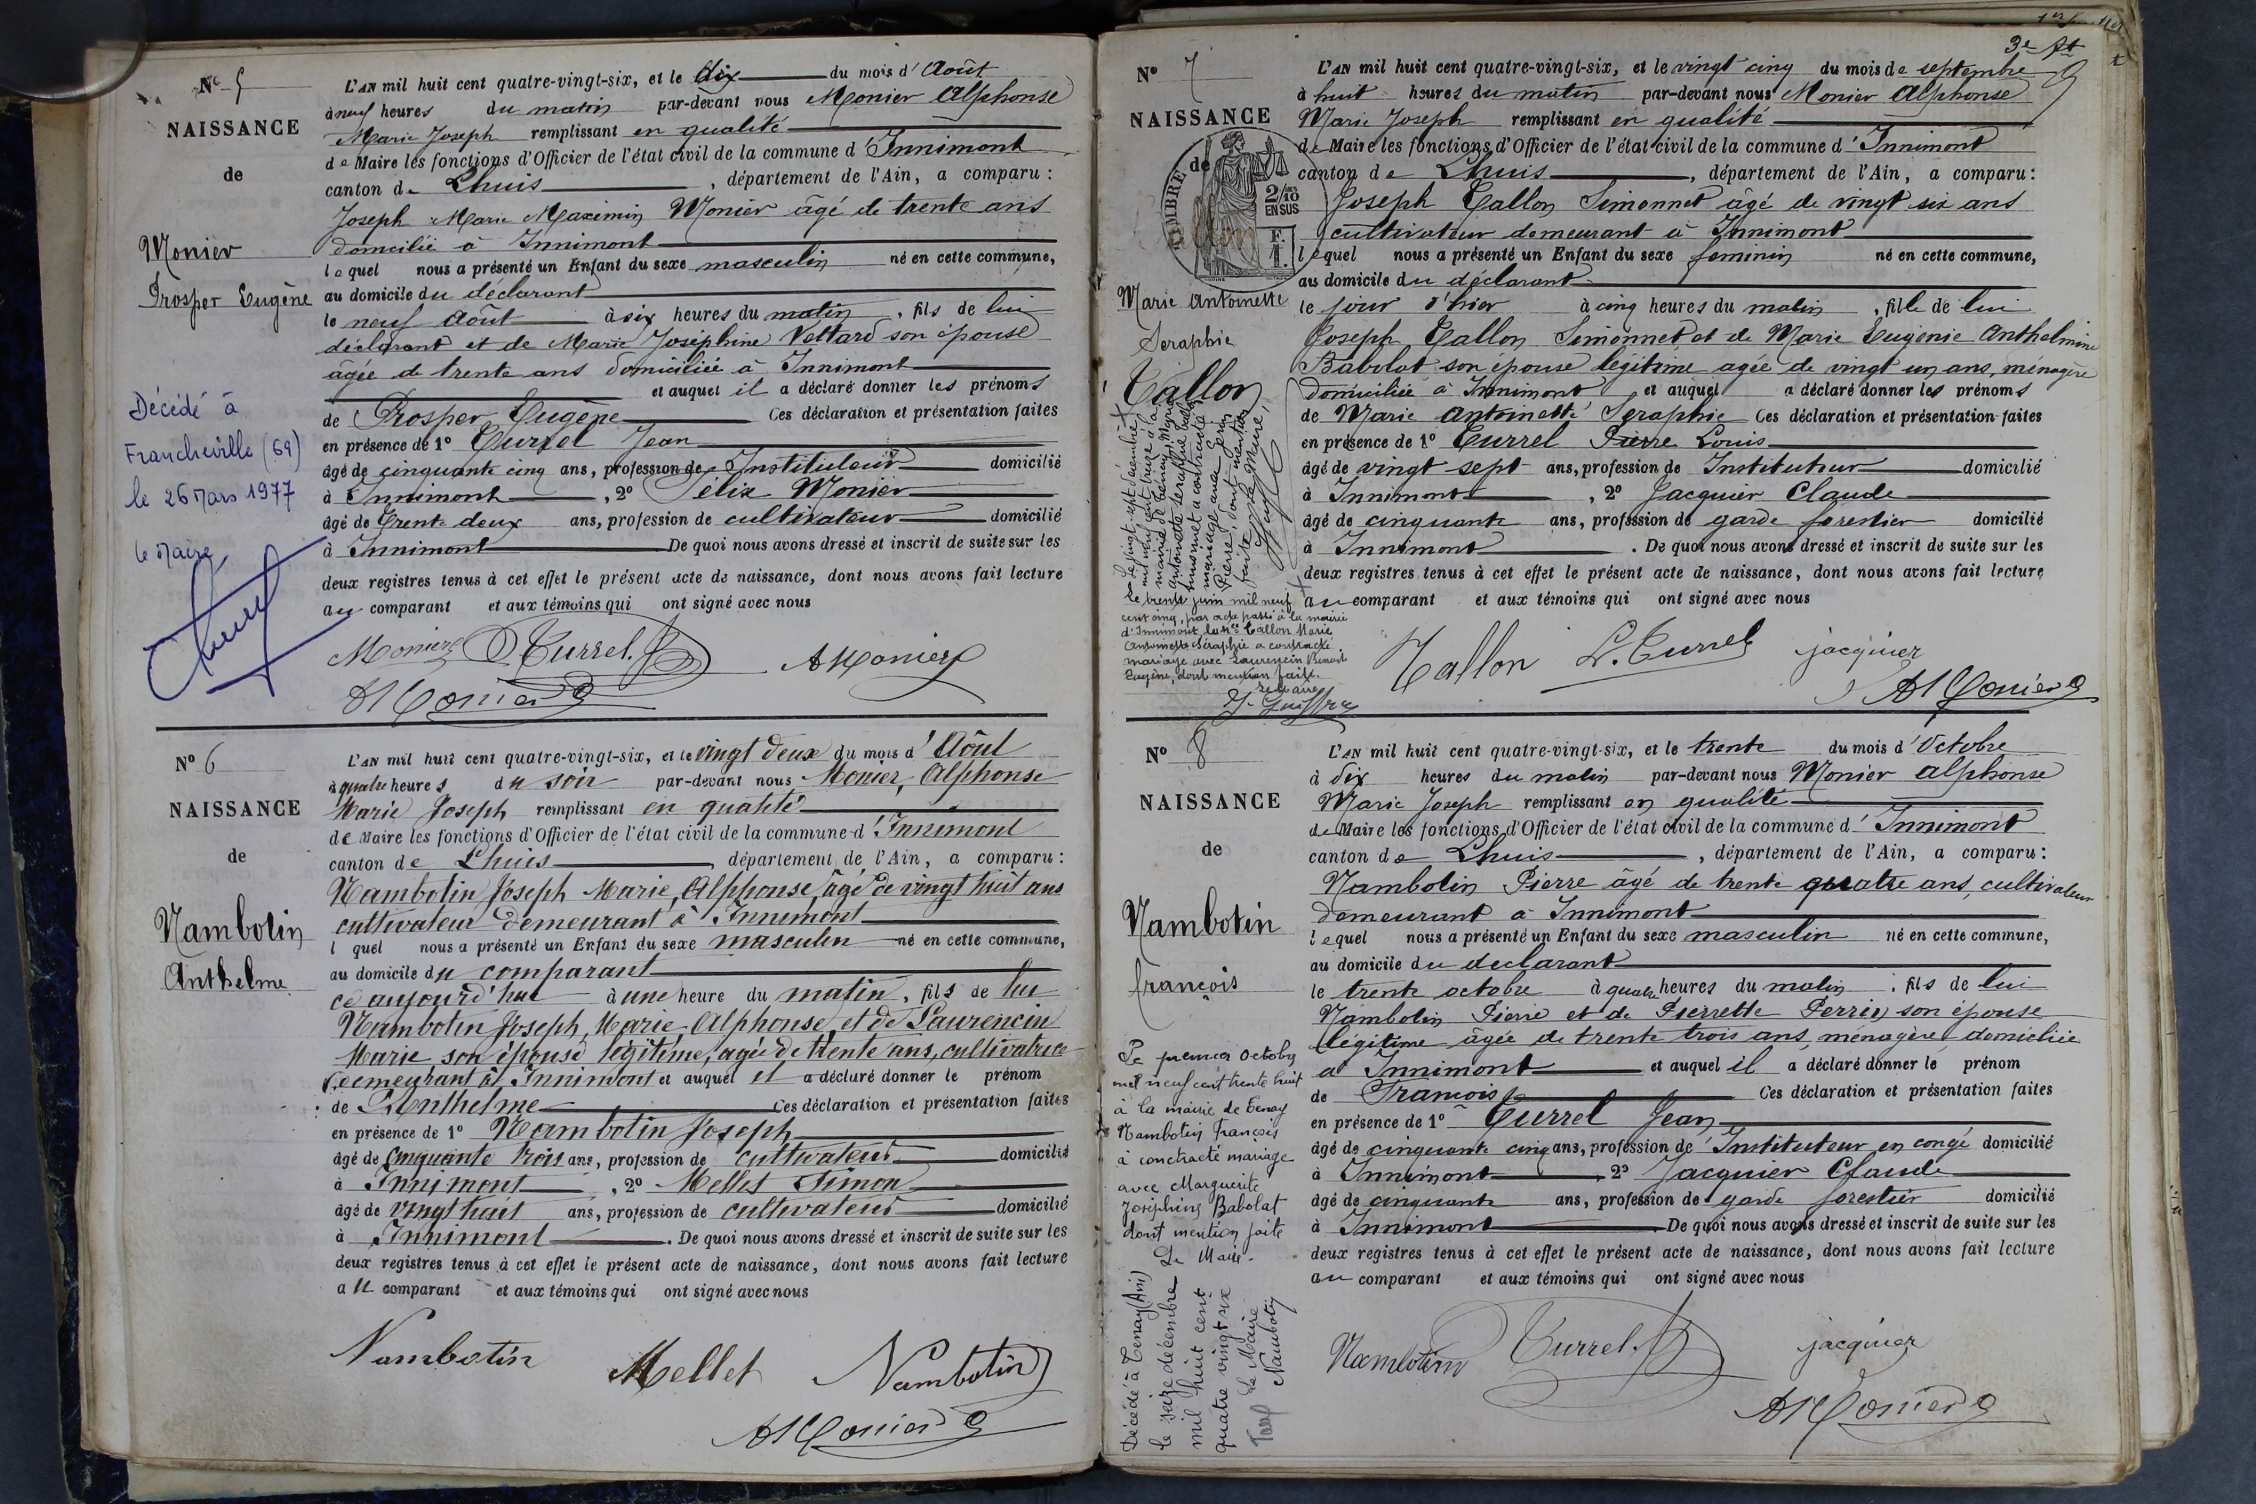 N° 5
NAISSANCE
de
Monier
Prosper Eugène
Décédé à
Francheville (69)
le 26 Mars 1977
le Maire,
L'AN mil huit cent quatre-vingt-six, et le dix du mois d'Août
à neuf heures du matin par-devant nous Monier Alphonse
Marie Joseph remplissant en qualité
de Maire les fonctions d'Officier de l'état civil de la commune d'Innimont
canton de Lhuis, département de l'Ain, a comparu :
Joseph Marie Maximin Monier âgé de trente ans
domicilié à Innimont
lequel nous a présenté un Enfant du sexe masculin né en cette commune,
au domicile du déclarant
le neuf Août à six heures du matin, fils de lui
déclarant et de Marie Joséphine Vettard son épouse
âgée de trente ans domiciliée à Innimont
et auquel il a déclaré donner les prénoms
de Prosper Eugène Ces déclaration et présentation faites
en présence de 1° Turrel Jean
âgé de cinquante cinq ans, profession de Instituteur domicilié
à Innimont, 2° Félix Monier
âgé de trente deux ans, profession de cultivateur domicilié
à Innimont De quoi nous avons dressé et inscrit de suite sur les
deux registres tenus à cet effet le présent acte de naissance, dont nous avons fait lecture
au comparant et aux témoins qui ont signé avec nous
Monier Turrel. J AMonier
AMonier
N° 6
NAISSANCE
de
Nambotin
Anthelme
L'AN mil huit cent quatre-vingt-six, et le vingt deux du mois d'Août
à quatre heures du soir par-devant nous Monier, Alphonse
Marie Joseph remplissant en qualité
de Maire les fonctions d'Officier de l'état civil de la commune d'Innimont
canton de Lhuis, département de l'Ain, a comparu :
Nambotin Joseph Marie, Alphonse, âgé de vingt huit ans
cultivateur demeurant à Innimont
l quel nous a présenté un Enfant du sexe masculin né en cette commune,
au domicile du comparant
ce aujourd'hui à une heure du matin, fils de lui
Nambotin Joseph, Marie Alphonse et de Laurencin
Marie son épouse légitime, agée de trente ans, cultivatrice
demeurant à Innimont et auquel il a déclaré donner le prénom
de Anthelme Ces déclaration et présentation faites
en présence de 1° Nambotin Joseph
âgé de cinquante trois ans, profession de cultivateur domicilié
à Innimont, 2° Mellet Simon
âgé de vingt huit ans, profession de cultivateur domicilié
à Innimont. De quoi nous avons dressé et inscrit de suite sur les
deux registres tenus à cet effet le présent acte de naissance, dont nous avons fait lecture
au comparant et aux témoins qui ont signé avec nous
Nambotin Mellet Nambotin
AMonier
3e At
N° 7
NAISSANCE
de
TIMBRE
2/10
EN SUS
Marie Antoinette
Seraphie
Tallon
Le vingt sept décembre
mil neuf cent
mairie de
Antoinette Seraphie
mariage avec
Pierre, dont mention
faite
le trente juin mil neuf
cent cinq, par acte passé à la mairie
d'Innimont, la Tallon Marie
Antoinette Séraphie a contracté
mariage avec Laurencin Benoit
Eugène, dont mention faite.
Le Maire
L'AN mil huit cent quatre-vingt-six, et le vingt cinq du mois de septembre
à huit heures du matin par-devant nous Monier Alphonse
Marie Joseph remplissant en qualité
de Maire les fonctions d'Officier de l'état civil de la commune d'Innimont
canton de Lhuis, département de l'Ain, a comparu :
Joseph Tallon Simonnet âgé de vingt six ans
cultivateur demeurant à Innimont
lequel nous a présenté un Enfant du sexe feminin né en cette commune,
au domicile du déclarant
le jour d'hier à cinq heures du matin, fille de lui
Joseph Tallon Simonnet et de Marie Eugénie Anthelmine
Babolat son épouse légitime agée de vingt un ans, ménagère
domiciliée à Innimont et auquel a déclaré donner les prénoms
de Marie Antoinette Seraphie Ces déclaration et présentation faites
en présence de 1° Turrel Pierre Louis
âgé de vingt sept ans, profession de Instituteur domicilié
à Innimont, 2° Jacquier Claude
âgé de cinquante ans, profession de garde forestier domicilié
à Innimont. De quoi nous avons dressé et inscrit de suite sur les
deux registres tenus à cet effet le présent acte de naissance, dont nous avons fait lecture
au comparant et aux témoins qui ont signé avec nous
Tallon L. Turrel jacquier
AMonier
N° 8
NAISSANCE
de
Nambotin
François
Le premier Octobre
mil neuf cent trente huit
à la mairie de Tenay
Nambotin François
à contracté mariage
avec Marguerite
Joséphine Babolat
dont mention faite
Le Maire.
Décédé à Tenay (Ain)
le seize décembre
mil huit cent
quatre vingt six
Le Maire
Nambotin
L'AN mil huit cent quatre-vingt-six, et le trente du mois d'Octobre
à dix heures du matin par-devant nous Monier Alphonse
Marie Joseph remplissant en qualité
de Maire les fonctions d'Officier de l'état civil de la commune d'Innimont
canton de Lhuis, département de l'Ain, a comparu :
Nambotin Pierre âgé de trente quatre ans, cultivateur
demeurant à Innimont
lequel nous a présenté un Enfant du sexe masculin né en cette commune,
au domicile du declarant
le trente octobre à quatre heures du matin, fils de lui
Nambotin Pierre et de Pierrette Perrin son épouse
légitime âgée de trente trois ans, ménagère domiciliée
à Innimont et auquel il a déclaré donner le prénom
de François Ces déclaration et présentation faites
en présence de 1° Turrel Jean
âgé de cinquante cinq ans, profession de Instituteur en congé domicilié
à Innimont 2° Jacquier Claude
âgé de cinquante ans, profession de garde forestier domicilié
à Innimont De quoi nous avons dressé et inscrit de suite sur les
deux registres tenus à cet effet le présent acte de naissance, dont nous avons fait lecture
au comparant et aux témoins qui ont signé avec nous
Nambotin Turrel. J jacquier
AMonier